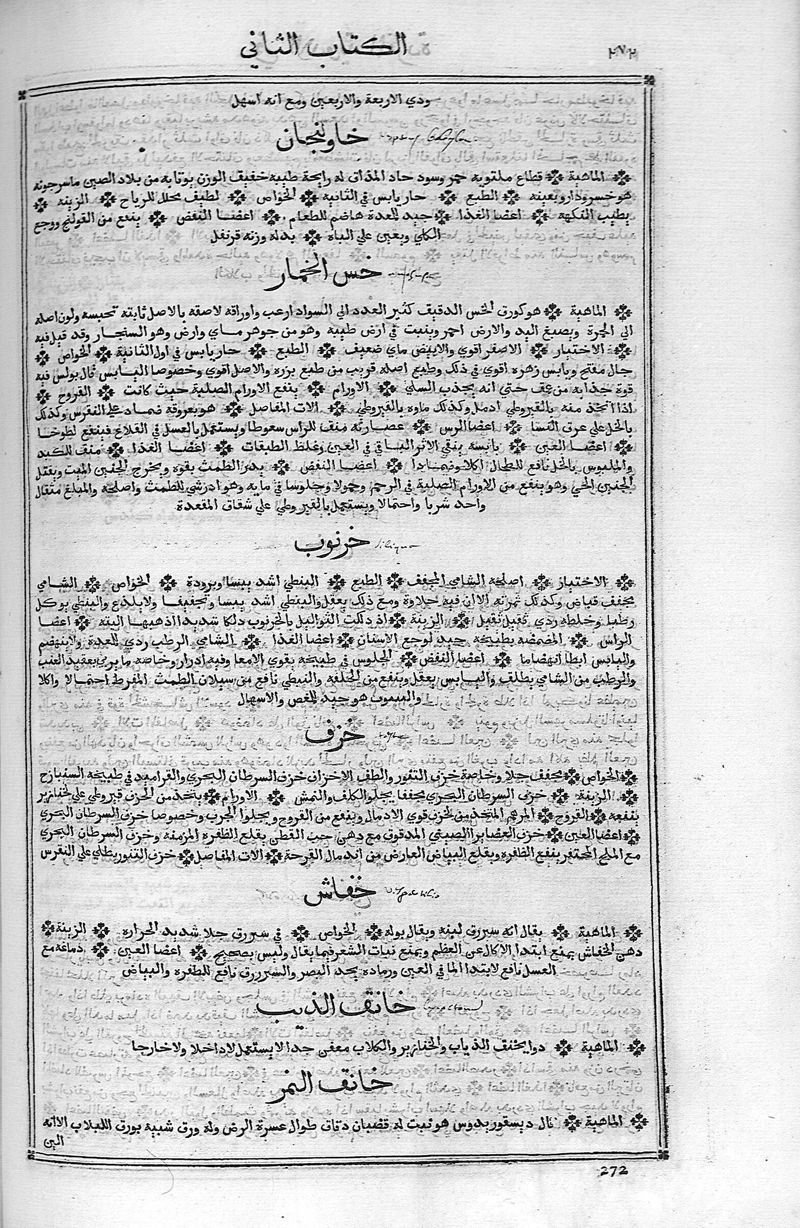 ٢٧٢
الكتاب الثاني
ودي الاربعة والاربعين ومع انه اسهل
خاولنجان
الماهية قطاع ملتويه حمر وسود حاد المذاق له رايحة طيبه خفيف الوزن يوتا به من بلاد الصين ماسرجونه
هو خسرودارو بعينه الطبع حار يابس في الثانيه الخواص لطيف محلل للرياح الزينه
يطيب النكهه اعضا الغذا جيد للمعدة هاضم للطعام اعضا النفض ينفع من القولنج ووجع
الكلي ويعين علي الباه بدله وزنه قرنفل
خس الحمار
الماهية هو كورق الخس الدقيق كثير العدد الي السواد ازغب واوراقه لاصقه بالاصل ثابته تحبسه ولون اصله
الي الحمرة ويصبغ اليد والارض احمر وينبت في ارض طيبه وهو من جوهر ماي وارضي وهو السنجار وقد قيل فيه
الاختيار الاصفر اقوي والابيض ماي ضعيف الطبع حار يابس في اول الثانية الخواص
جال مفتح ويابس زهره اقوي في ذلك وطبع اصله قريب من طبع بزره والاصل اقوي وخصوصا اليابس قال بولس فيه
قوة جذابه من عمق حتي انه يجذب السلي الاورام ينفع الاورام الصلبة حيث كانت القروح
اذا اتخذ منه بالقيروطي ادمل وكذلك ماوه بالقيروطي الات المفاصل هو بعروقه ضماد علي النقرس وكذلك
بالخل علي عرق النسا اعضا الراس عصارته منقي للراس سعوطا ويستعمل بالعسل في القلاع فينفع لطوخا
اعضا العين يابسه ينقي الاثر الباقي في العين وغلظ الطبقات اعضا الغذا منقي للكبد
والمليوس بالخل نافع للطحال اكلا وضمادا اعضا النفض يدر الطمث بقوه ويخرج الجنين الميت ويقتل
الجنين الحي وهو ينفع من الاورام الصلبة في الرحم وحمولا وجلوسا في مايه وهو ادر شي للطمث واصلحه والمبلغ مثقال
واحد شربا واحتمالا ويستعمل بالقيروطي علي شقاق المقعدة
خرنوب
الاختيار اصلحه الشامي المجفف الطبع النبطي اشد يبسا وبرودة الخواص الشامي
يجفف قباض وكذلك ثمرته الا ان فيه حلاوة ومع ذلك يعقل والنبطي اشد يبسا وتجفيفا ولا يلذع والنبطي يوكل
رطبا وخلطه ردي ثقيل ثقيل الزينة اذ دلكت الثواليل بالخرنوب دلكا شديدا اذهبها البته اعضا
الراس المضمضه بطبيخه جيد لوجع الاسنان اعضا الغذا الشامي الرطب ردي للمعدة ولا ينهضم
واليابس ابطا انهضاما اعضا النفض الجلوس في طبيخه يقوي الامعا وفيه ادرار وخاصه ما يربي بعقيد العنب
والرطب من الشامي يطلق واليابس يعقل وينفع من الخلفه والنبطي نافع من سيلان الطمث المفرط احتمالا واكلا
والينبوت هو جيد للمغص والاسهال
خزف
الخواص يجفف جلا وخاصة خزف التنور والطف الاخزان خزف السرطان البحري والقراميد في طبيخه السنباذج
الزينة خزف السرطان البحري مجففا يجلو الكلف والنمش الاورام يتخذ من الخزف قيروطي علي الخنازير
ينفعه القروح المرهم المتخذ من الخزف قوي الادمال وينفع من القروح ويجلوا الجرب وخصوصا خزف السرطان البحري
اعضا العين خزف الغضاير الصيني المدقوق مع دهن حب القطن يقلع الظفره المزمنه وخزف السرطان البحري
مع الملح المحتفر ينفع الظفره ويقلع البياض العارض من اندمال القرحة الات المفاصل خزف التنور يطلي علي النقرس
خفاش
الماهية يقال انه سيررق لبنه ويقال بوله الخواص في سيررق جلا شديد الحرارة الزينة
دهن الخفاش يمنع ابتدا الاكال عن العظم ويمنع نبات الشعر فيما يقال وليس بصحيح اعضا العين دماغه مع
العسل نافع لابتدا الما في العين ورماده يحد البصر والسيررق نافع للظفره والبياض
خانق الذيب
الماهية دوا يخنق الذياب والخنازير والكلاب معفن جدا لا يستعمل لا داخلا ولا خارجا
خانق النمر
الماهية قال ديسقوريدوس هو نبت له قضبان دقاق طوال عسرة الرض وله ورق شبيه بورق اللبلاب الا انه
الين
272